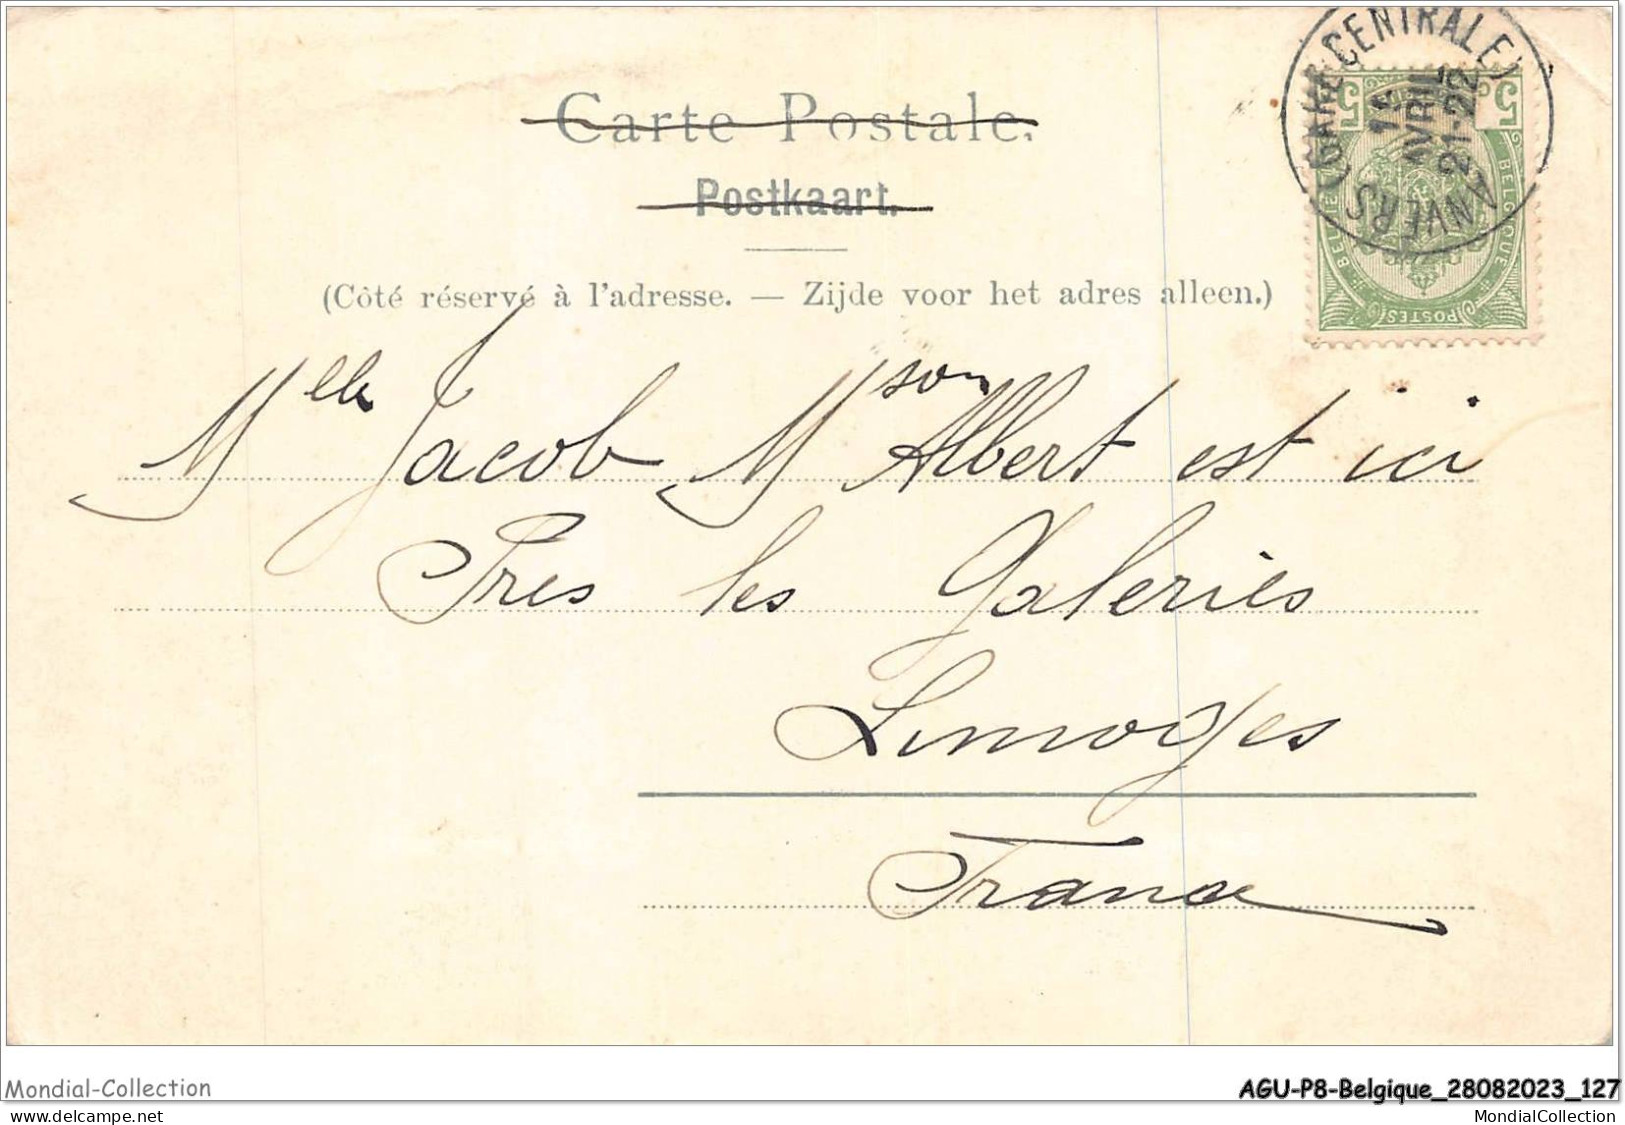 Carte Postale.
Postkaart.
(Côté réservé à l'adresse. — Zijde voor het adres alleen.)
ANVERS (GARE CENTRALE)
AVRIL
21-22
5 5
BELGIQUE BELGIE
POSTES
Mlle Jacob Mson Albert est ici
Près les Galeries
Limoges
France
Mondial-Collection
AGU-P8-Belgique_28082023_127
www.delcampe.net
MondialCollection